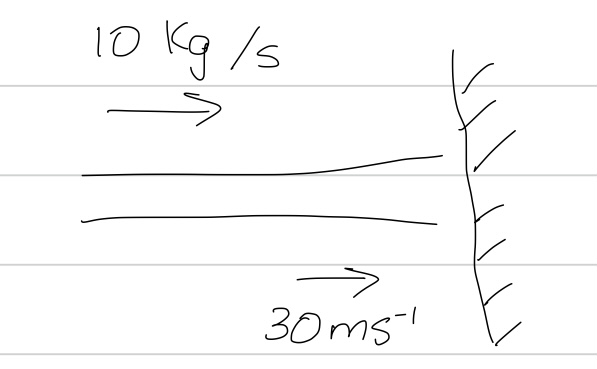 10 Kg /s
30ms⁻¹